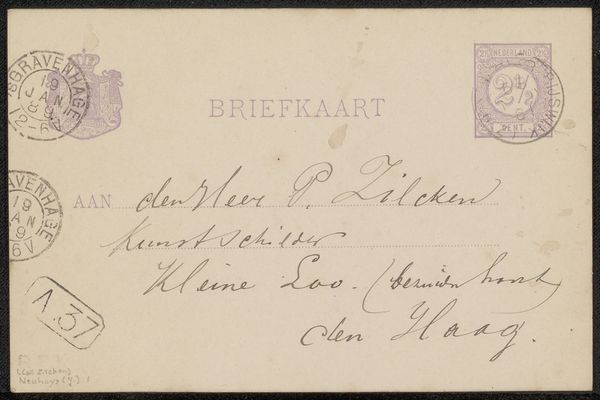 'sGRAVENHAGE
19
JAN
89
12-6V
NEDERLAND
2½
CENT.
RIJSWIJK
BRIEFKAART
AVENHAGE
19
AN
9
6V
AAN den Heer P. Zilcken
Kunstschilder
Kleine Loo. (bezuidenhout)
den Haag.
A.37
(aan Zilcken)
Neuhuys (J.) 1